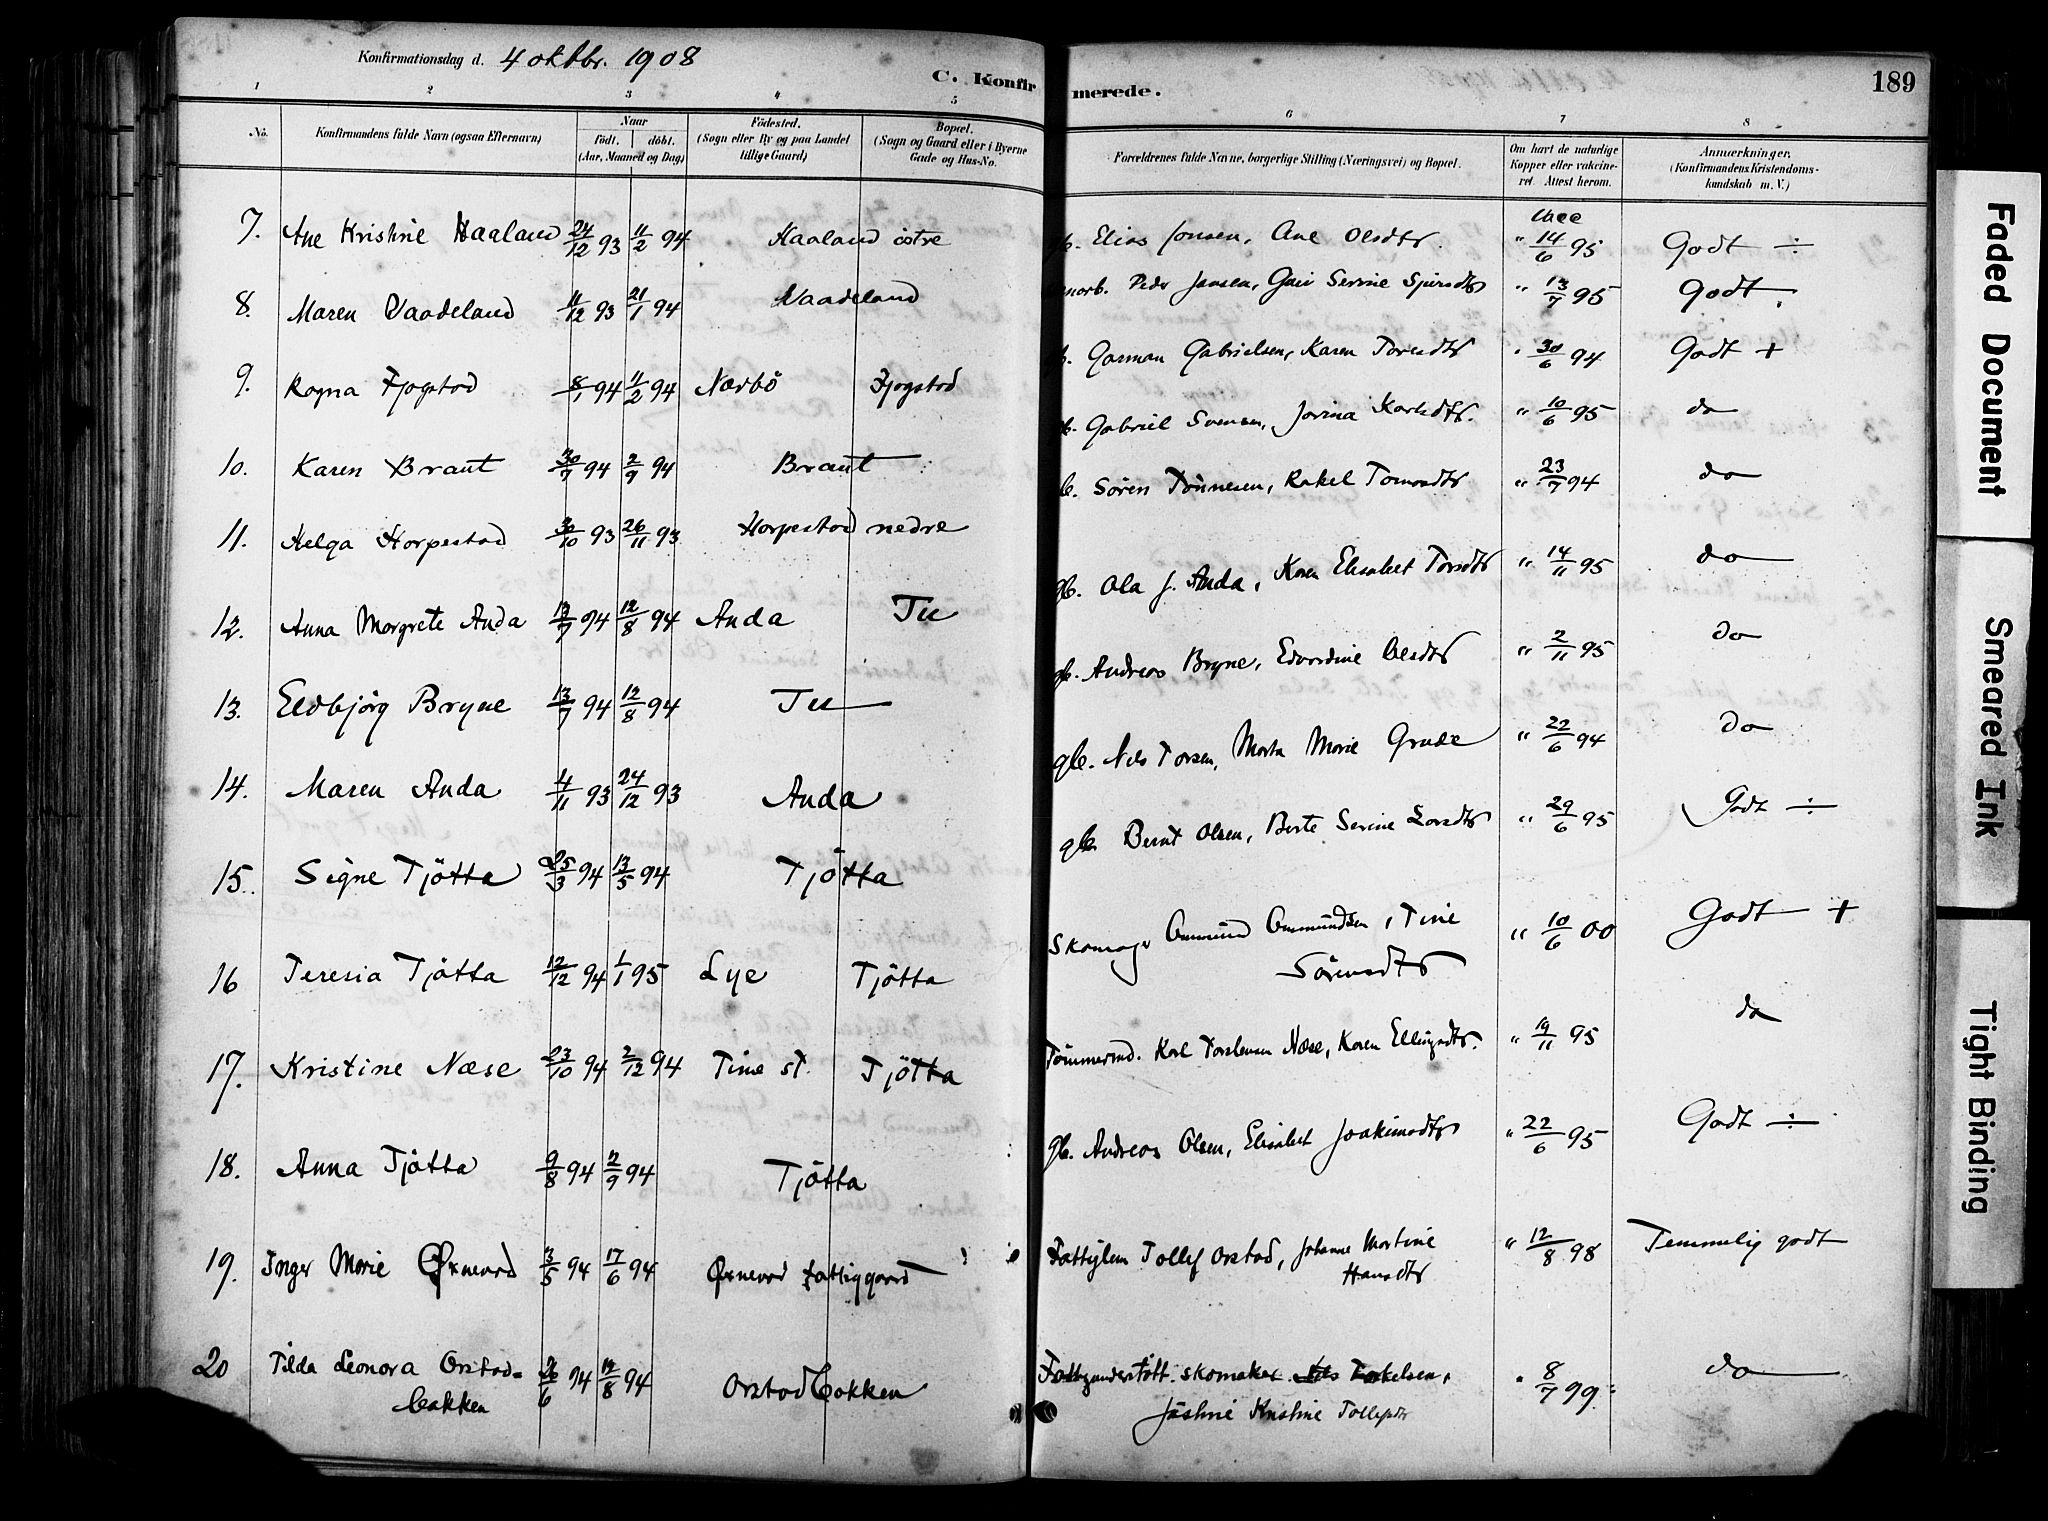 Konfirmationsdag d. 4 oktbr. 1908
C. Konfirmerede.
189
1 2 3 4 5 6 7 8
No. Konfirmandens fulde Navn (ogsaa Efternavn) Naar födt. döbt. (Aar, Maaned og Dag) Födested. (Sogn eller By og paa Landet tillige Gaard) Bopæl. (Sogn og Gaard eller i Byerne Gade og Hus-No. Forældrenes fulde Navne, borgerlige Stilling (Næringsvei) og Bopæl. Om havt de naturlige Kopper eller vakcineret. Attest herom. Anmærkninger. (Konfirmandens Kristendomskundskab m. V.)
7. Ane Kristine Haaland 24/12 93 11/2 94 Haaland östre Elias Jonsen, Ane Olsdtr. vacc " 14/6 95 Godt ÷
8. Maren Vaadeland 11/12 93 21/1 94 Vaadeland Peder Jansen, Guri Serine Sjursdtr " 13/7 95 Godt
9. Ragna Fjogstad 8/1 94 11/2 94 Nærbö Fjogstad Garman Gabrielsen, Karen Toresdtr " 30/6 94 Godt +
10. Karen Braut 30/7 94 2/9 94 Braut Gabriel Svensen, Jorina Karlsdtr. " 10/6 95 do
11. Helga Horpestad 30/10 93 26/11 93 Horpestad nedre Sören Tönnesen, Rakel Tomasdtr " 23/7 94 do
12. Anna Margrete Anda 13/7 94 12/8 94 Anda Tu gb. Ola J. Anda, Karen Elisabet Torsdtr " 14/11 95 do
13. Eldbjörg Bryne 13/7 94 12/8 94 Tu gb. Andreas Bryne, Edvardine Olsdtr " 2/11 95 do
14. Maren Anda 4/11 93 24/12 93 Anda gb. Nils Torsen, Marta Marie Grude " 22/6 94 do
15. Signe Tjötta 25/3 94 13/5 94 Tjötta gb. Bernt Olsen, Berte Serine Larsdtr " 29/6 95 Godt ÷
16 Teresia Tjötta 12/12 94 1/1 95 Lye Tjötta Skomager Ommund Ommundsen, Tine
Sörensdtr " 10/6 00 Godt +
17. Kristine Næse 23/10 94 2/12 94 Time st. Tjötta Tömmermd. Karl Torstensen Næse, Karen Ellingsdtr. " 19/11 95 do
18. Anna Tjötta 9/8 94 2/9 94 Tjötta gb. Andreas Olsen, Elisabet Joakimsdtr " 22/6 95 Godt ÷
19. Inger Marie Öxnevad 3/5 94 17/6 94 Öxnevad fattiggaard Fattiglem Tollef Orstad, Johanne Martine
Hansdtr " 12/8 98 Temmelig godt
20 Tilda Leonora Orstad-
bakken 26/6 94 12/8 94 Orstadbakken Fattigunderstött. skomaker Nils Torkelsen,
Jästine Kristine Tollefsdtr " 8/7 99. do
Faded Document
Smeared Ink
Tight Binding